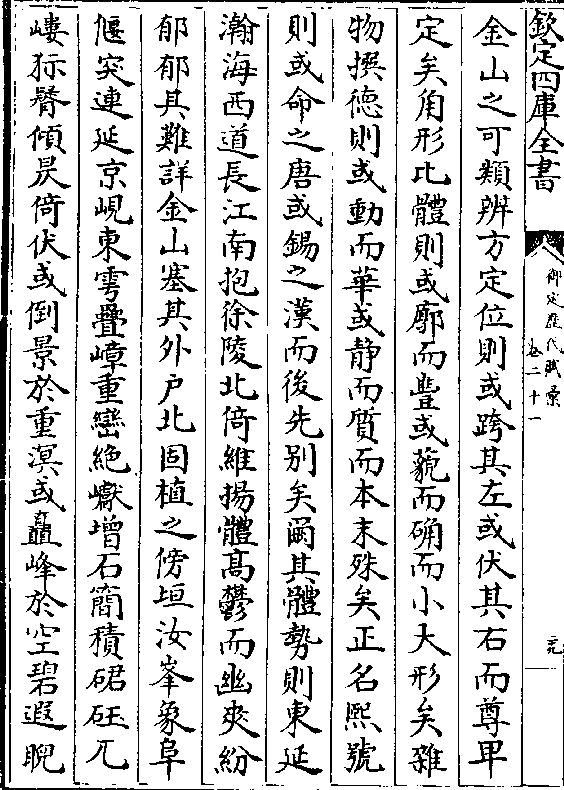 欽定四庫全書
御定歷代賦彙
卷二十一
金山之可類辨方定位則或跨其左或伏其右而尊卑
定矣角形比體則或廓而豐或藐而确而小大形矣雜
物撰德則或動而華或静而質而本末殊矣正名熙號
則或命之唐或錫之漢而後先别矣闚其體勢則東延
瀚海西道長江南抱徐陵北倚維揚體髙鬱而幽爽紛
郁郁其難詳金山塞其外户北固植之傍垣汝峯象阜
偃突連延京峴東雩疊嶂重巒絶巘增石簡積硱砡兀
嶁狋㟯傾昃倚伏或倒景於重溟或矗峰於空碧遐睨